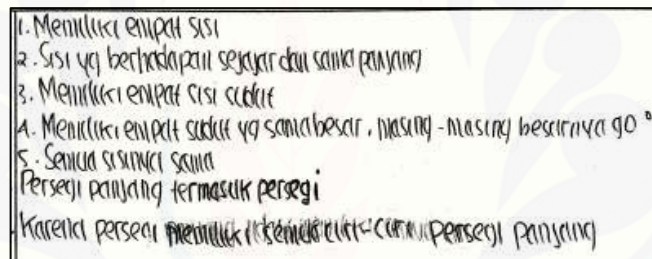 1. Memiliki empat sisi
2. Sisi yg berhadapan sejajar dan sama panjang
3. Memiliki empat sisi sudut
4. Memiliki empat sudut yg sama besar, masing-masing besarnya 90°
5. Semua sisinya sama
Persegi panjang termasuk persegi
Karena persegi memiliki semua ciri-ciri persegi panjang